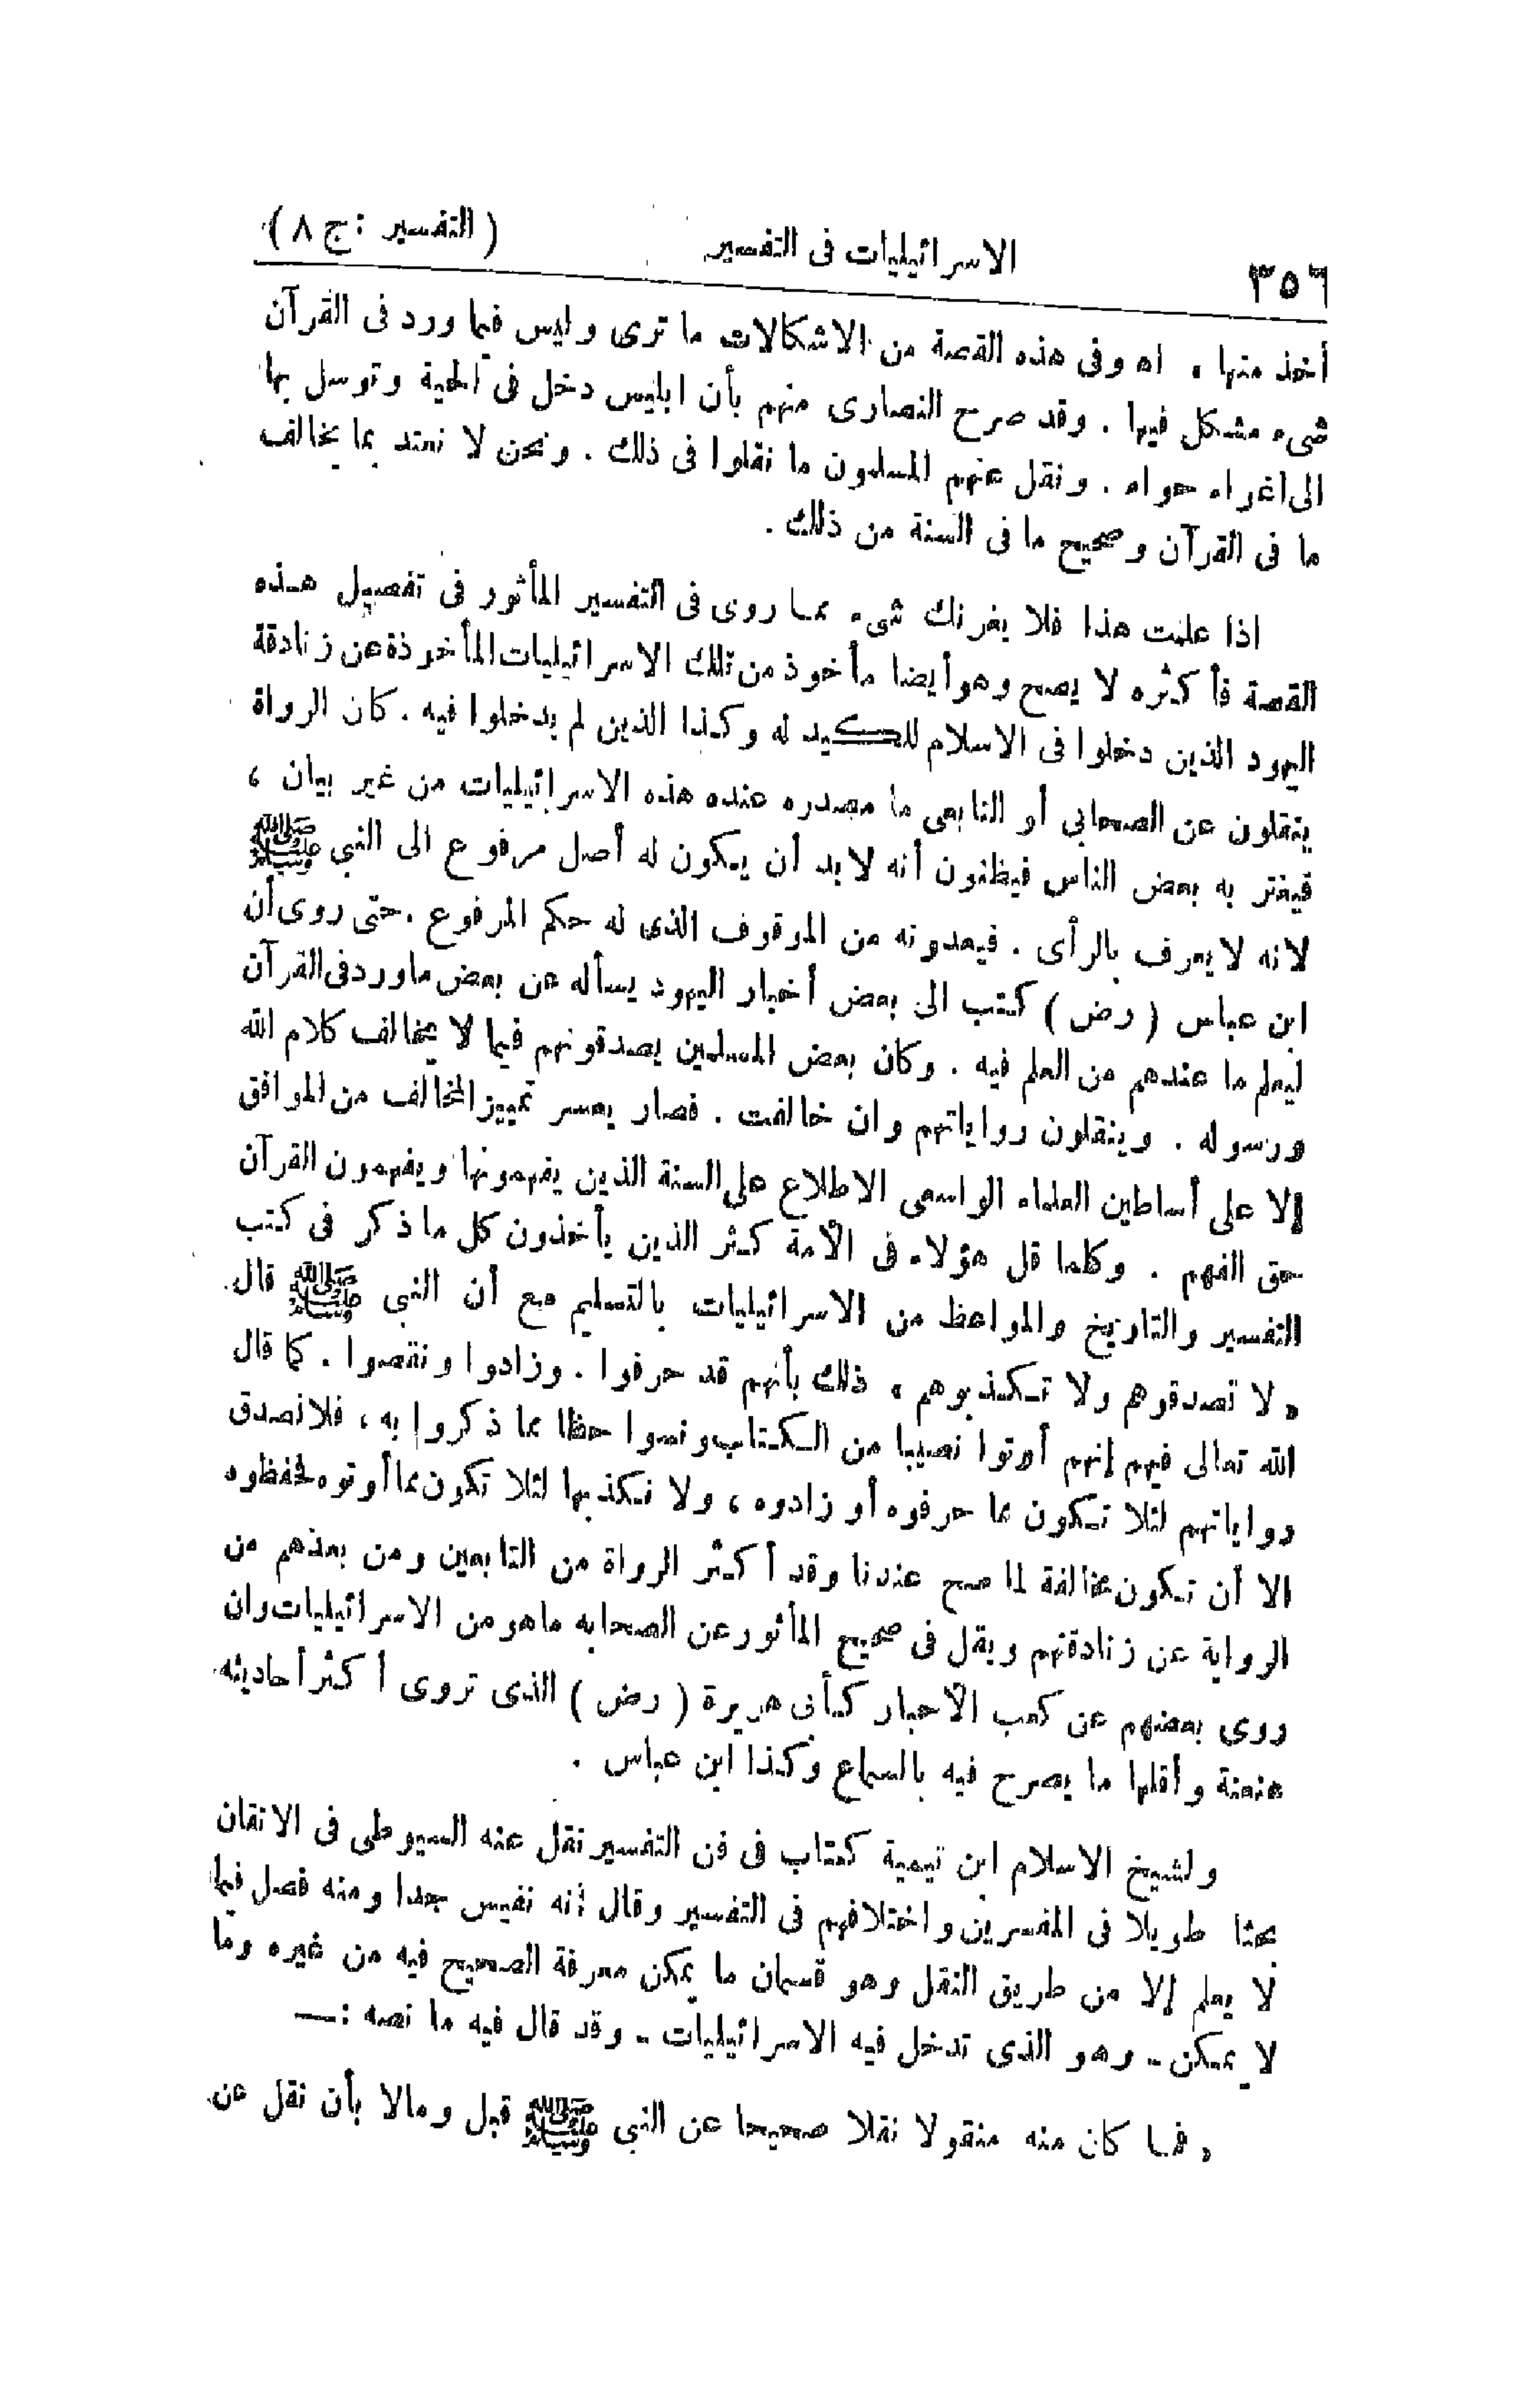 ٣٥٦ الاسرائيليات فى التفسير ( التفسير : ج ٨ )
أخذ منها ، اه وفى هذه القصة من الاشكالات ما ترى وليس فيما ورد فى القرآن
شىء مشكل فيها . وقد صرح النصارى منهم بأن ابليس دخل فى الحية وتوسل بها
الى اغراء حواء . ونقل عنهم المسلمون ما نقلوا فى ذلك . ونحن لا نعتد بما يخالف
ما فى القرآن وصحيح ما فى السنة من ذلك .
اذا علمت هذا فلا يغرنك شىء مما روى فى التفسير المأثور فى تفصيل هذه
القصة فأكثره لا يصح وهو أيضا مأخوذ من تلك الاسرائيليات المأخوذة عن زنادقة
اليهود الذين دخلوا فى الاسلام للكيد له وكذا الذين لم يدخلوا فيه . كان الرواة
ينقلون عن الصحابي أو التابعى ما مصدره عنده هذه الاسرائيليات من غير بيان ،
فيغتر به بعض الناس فيظنون أنه لا بد أن يكون له أصل مرفوع الى النبي ﷺ
لانه لا يعرف بالرأى . فيعدونه من الموقوف الذى له حكم المرفوع . حتى روى أن
ابن عباس ( رض ) كتب الى بعض أحبار اليهود يسأله عن بعض ما ورد فى القرآن
ليعلم ما عندهم من العلم فيه . وكان بعض المسلمين يصدقونهم فيما لا يخالف كلام الله
ورسوله . وينقلون رواياتهم وان خالفت . فصار يعسر تمييز المخالف من الموافق
إلا على أساطين العلماء الواسعى الاطلاع على السنة الذين يفهمونها ويفهمون القرآن
حق الفهم . وكلما قل هؤلاء فى الأمة كثر الذين يأخذون كل ما ذكر فى كتب
التفسير والتاريخ والمواعظ من الاسرائيليات بالتسليم مع أن النبى ﷺ قال
« لا تصدقوهم ولا تكذبوهم » ذلك بأنهم قد حرفوا . وزادوا ونقصوا . كما قال
الله تعالى فيهم إنهم أوتوا نصيبا من الكتاب ونسوا حظا مما ذكروا به ، فلا نصدق
رواياتهم لئلا تكون مما حرفوه أو زادوه ، ولا نكذبها لئلا تكون مما أوتوه فحفظوه
الا أن تكون مخالفة لما صح عندنا وقد أكثر الرواة من التابعين ومن بعدهم من
الرواية عن زنادقتهم ويقل فى صحيح المأثور عن الصحابه ما هو من الاسرائيليات وان
روى بعضهم عن كعب الأحبار كأبى هريرة ( رض ) الذى تروى أكثر أحاديثه
عنعنة وأقلها ما يصرح فيه بالسماع وكذا ابن عباس .
ولشيخ الاسلام ابن تيمية كتاب فى فن التفسير نقل عنه السيوطى فى الاتقان
بحثا طويلا فى المفسرين واختلافهم فى التفسير وقال إنه نفيس جدا ومنه فصل فيما
لا يعلم إلا من طريق النقل وهو قسمان ما يمكن معرفة الصحيح فيه من غيره وما
لا يمكن - وهو الذى تدخل فيه الاسرائيليات - وقد قال فيه ما نصه : —
« فما كان منه منقولا نقلا صحيحا عن النبى ﷺ قبل ومالا بأن نقل عن